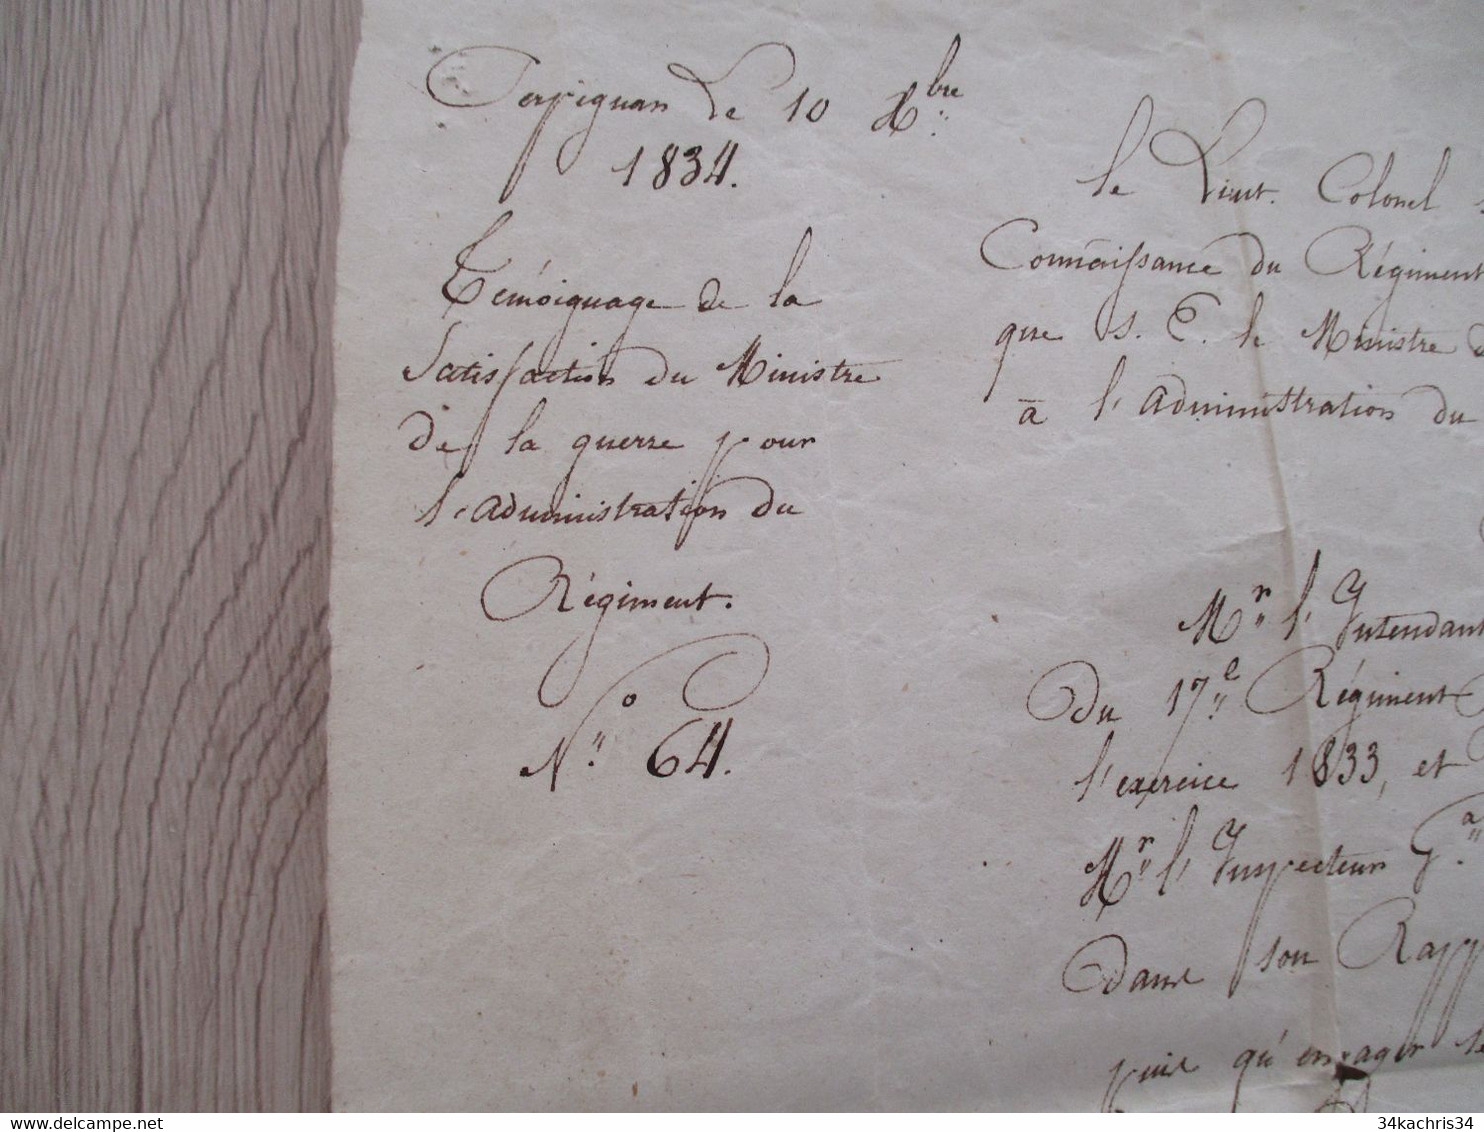 Perpignan Le 10 Xbre
1834.
Témoignage de la
Satisfaction du Ministre
de la guerre pour
l'administration du
Régiment.
No 64.
le Lieut. Colonel
Connaissance du Régiment
que S. E. le Ministre
à l'administration du
Mr l'Intendant
du 17e Régiment
l'exercice 1833, et
Mr l'Inspecteur Ga
dans son Rapp
puis qu'engager
34kachris34